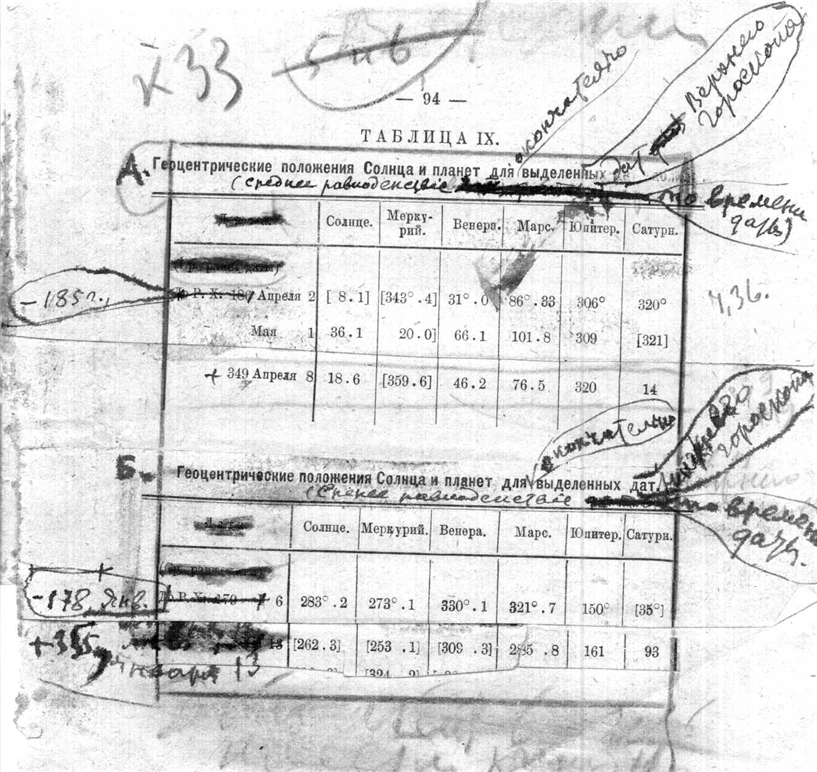 к 33
5 п 6
— 94 —
окончательно
Верхнего
гороскопа
ТАБЛИЦА IX.
А. Геоцентрические положения Солнца и планет для выделенных дат
(среднее равноденствие по времени
даты)
Солнце. Мерку-рий. Венера. Марс. Юпитер. Сатурн.
— 185 г., Апреля 2 [ 8.1] [343°.4] 31°.0 86°.33 306° 320°
4,36.
Мая 1 36.1 20.0] 66.1 101.8 309 [321]
+ 349 Апреля 8 18.6 [359.6] 46.2 76.5 320 14
окончательно
гороскопа
Б. Геоцентрические положения Солнца и планет для выделенных дат
(Среднее равноденствие по времени
даты.
Солнце. Меркурий. Венера. Марс. Юпитер. Сатурн.
—178 Янв. 6 283°.2 273°.1 330°.1 321°.7 150° [35°]
+355, 13 [262.3] [253.1] [309.3] 285.8 161 93
января 13